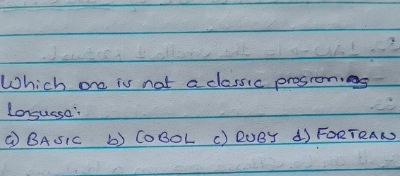 Which one is not a classic programing
language:
a) BASIC b) COBOL c) RUBY d) FORTRAN